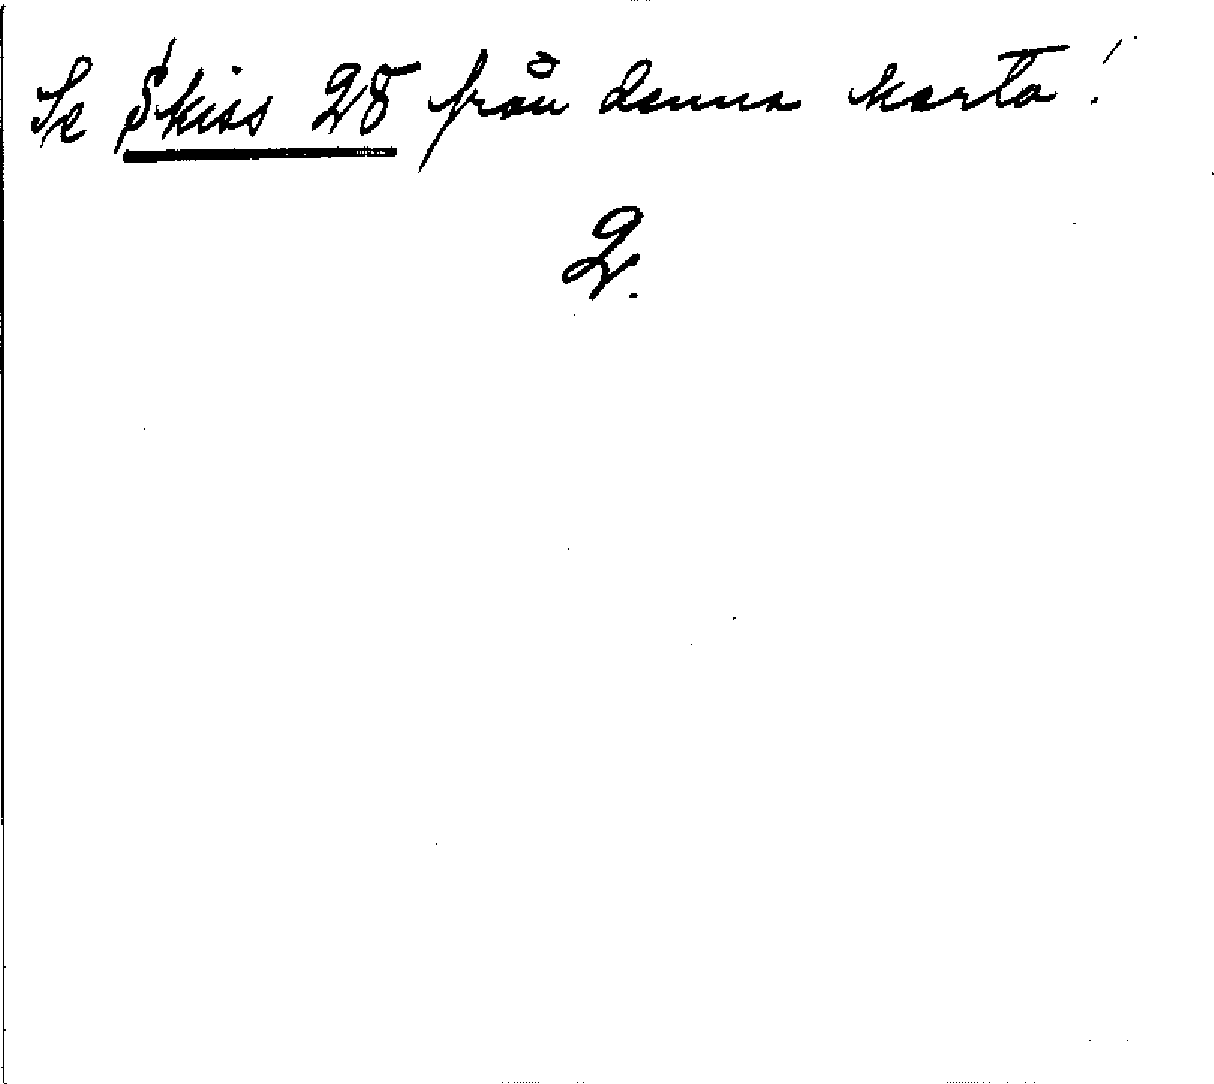 Se Skiss 28 från denna karta!
2.